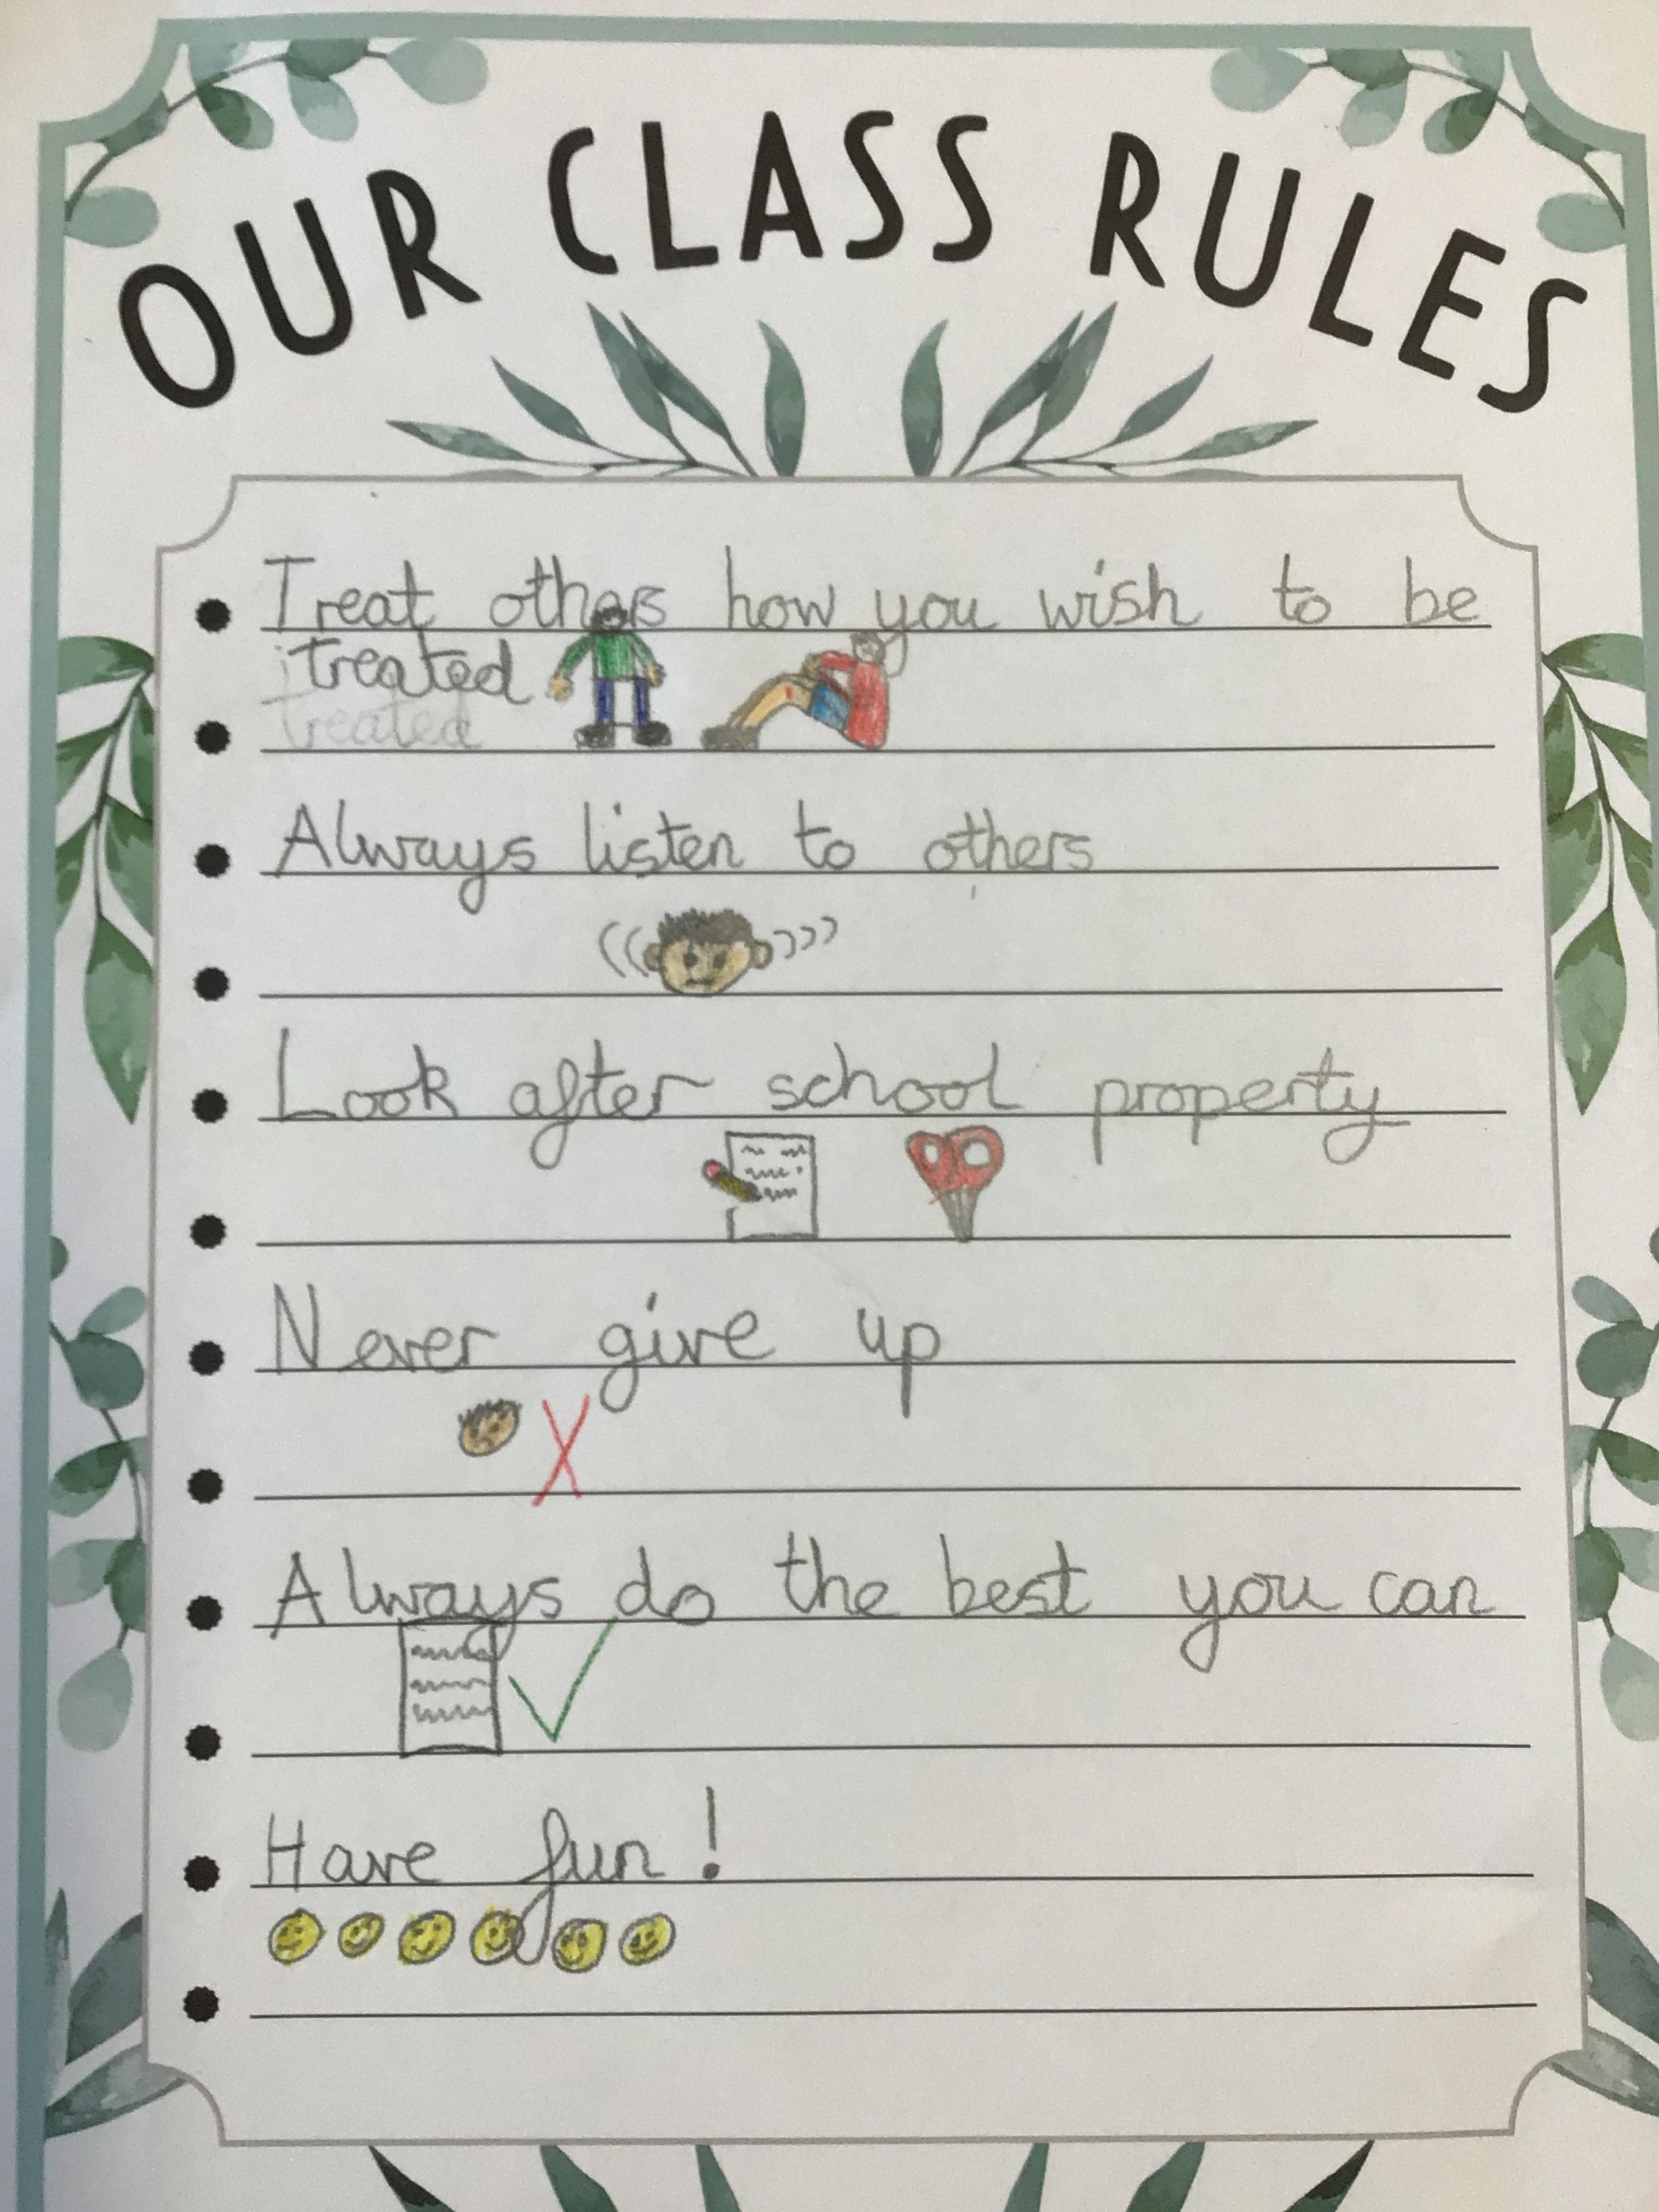 OUR CLASS RULES
Treat others how you wish to be
treated
treated
Always listen to others
Look after school property
Never give up
Always do the best you can
Have fun!